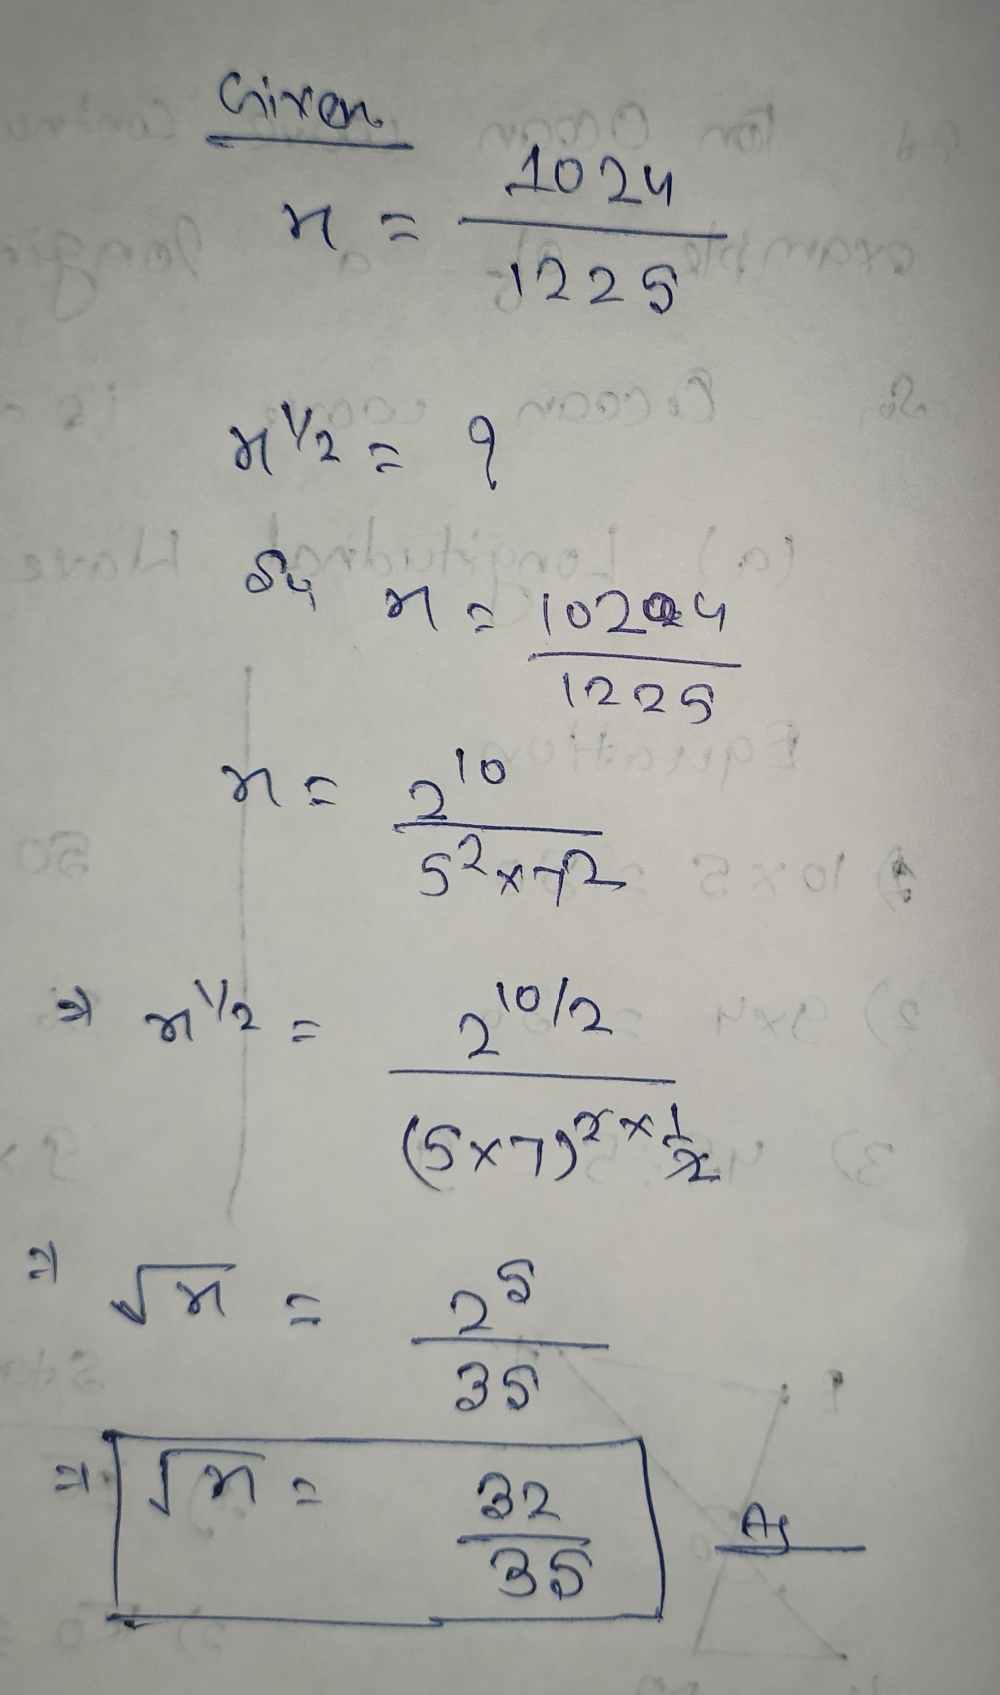 Given
x = 1024 / 1225
x^1/2 = ?
So, x = 1024 / 1225
x = 2^10 / 5^2 × 7^2
⇒ x^1/2 = 2^10/2 / (5×7)^2 × 1/2
⇒ √x = 2^5 / 35
⇒ √x = 32 / 35 As